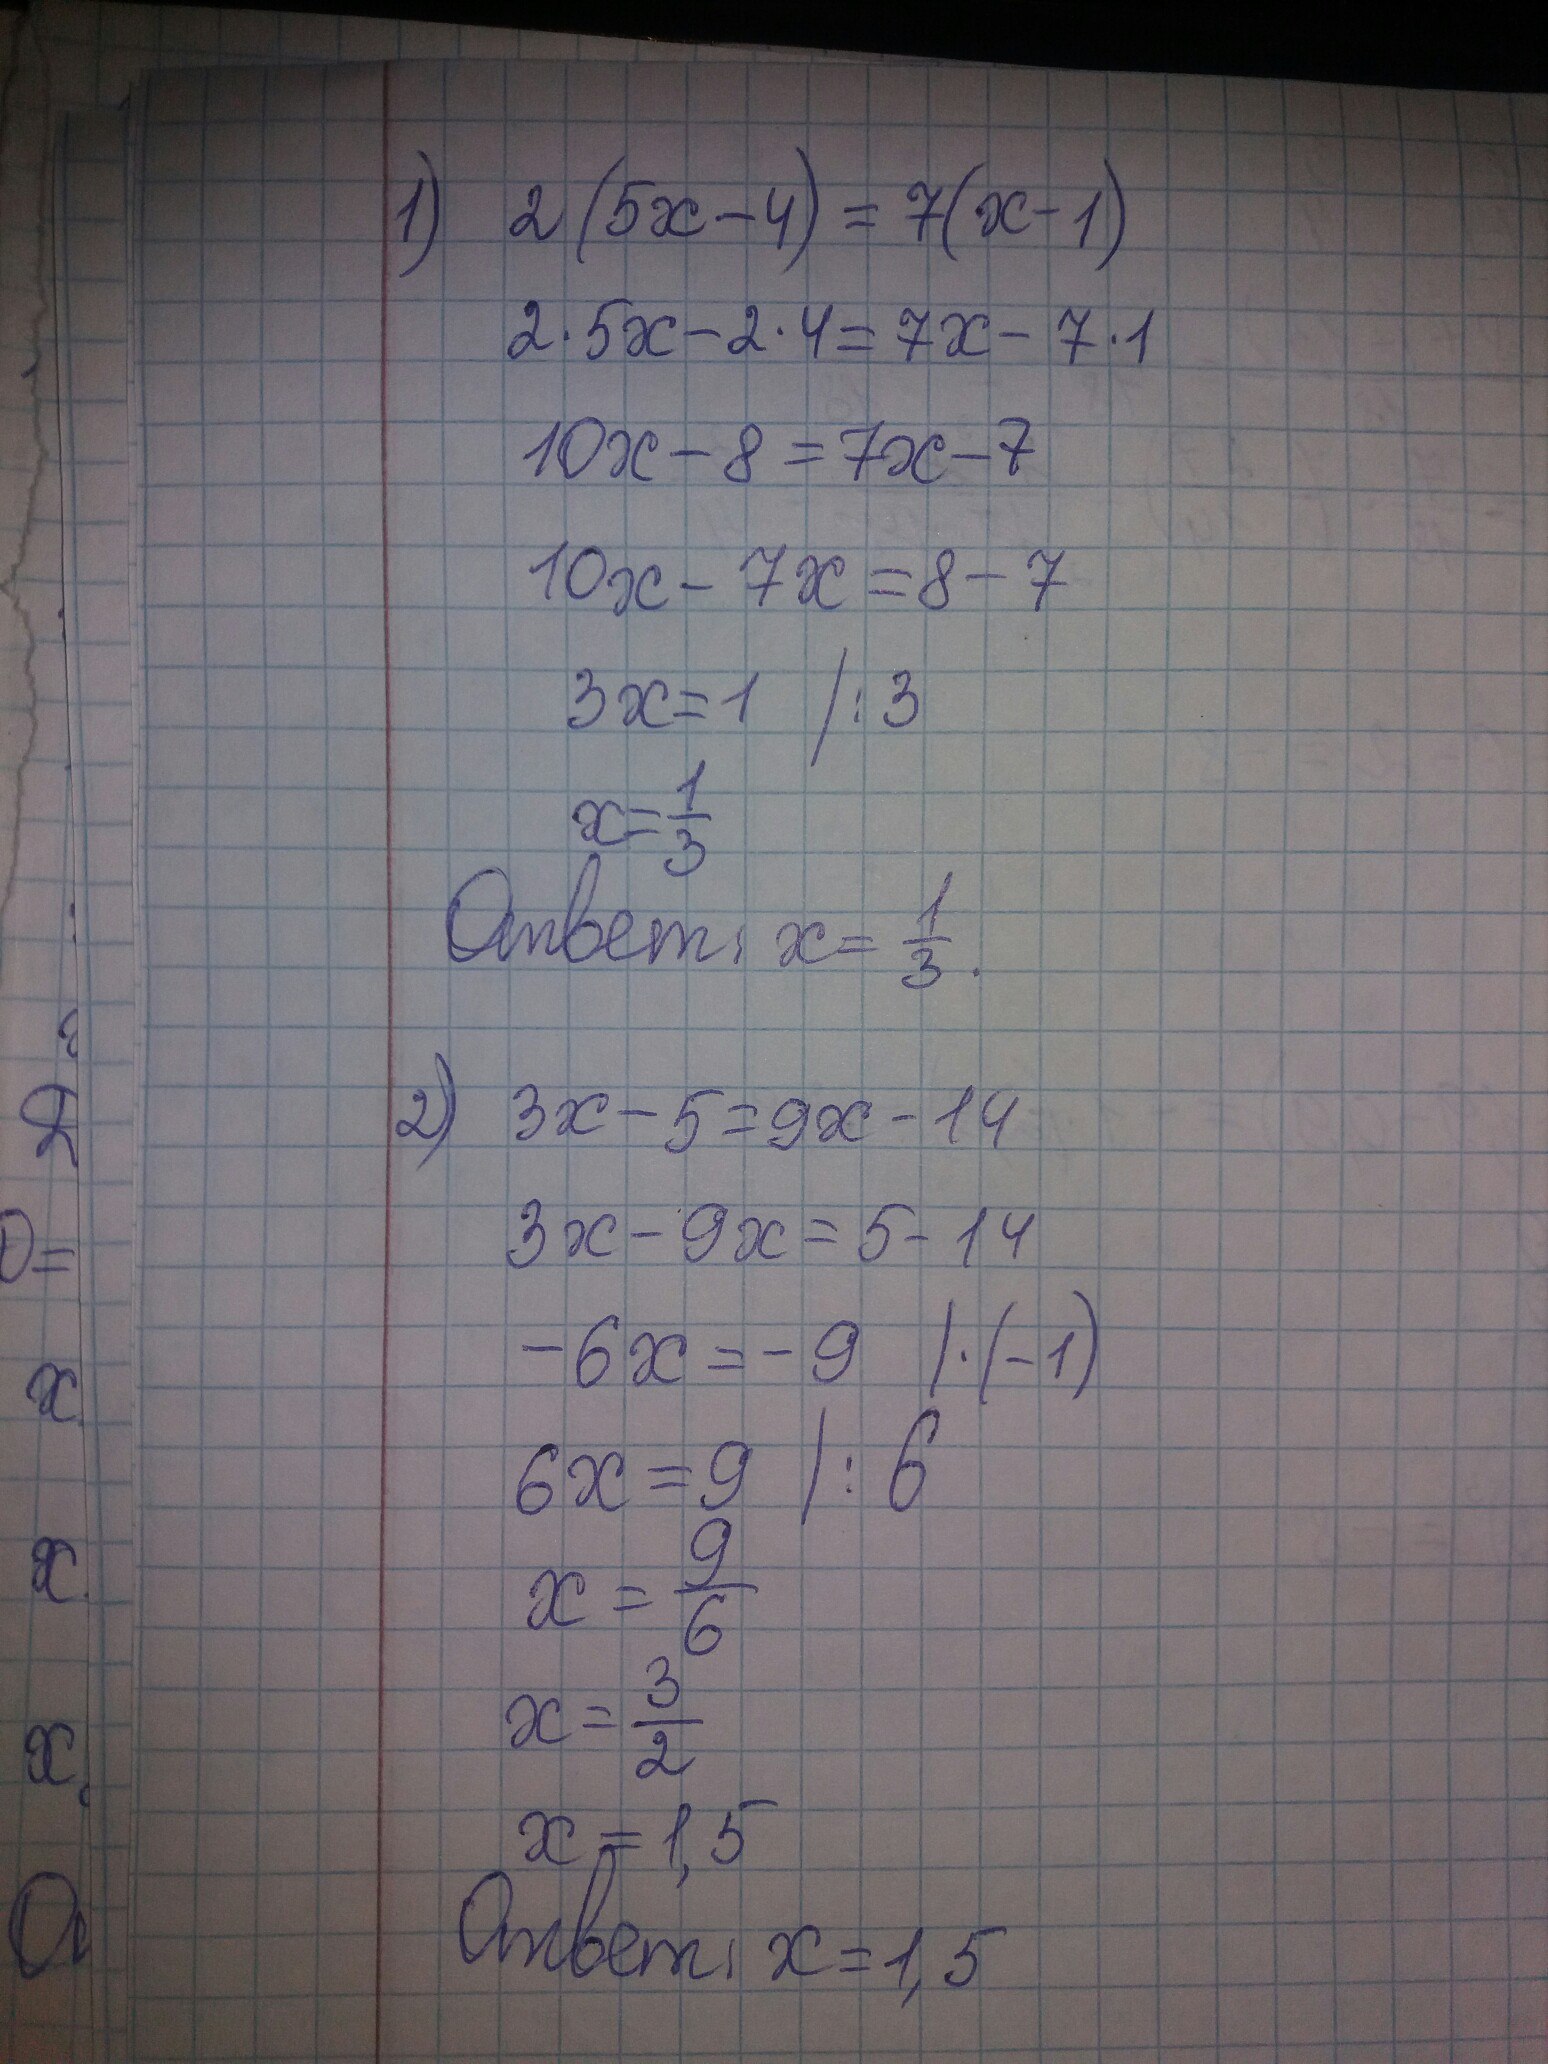 1) 2(5x-4)=7(x-1)
2·5x-2·4=7x-7·1
10x-8=7x-7
10x-7x=8-7
3x=1 /:3
x=1/3
Ответ: x=1/3.
2) 3x-5=9x-14
3x-9x=5-14
-6x=-9 /·(-1)
6x=9 /:6
x=9/6
x=3/2
x=1,5
Ответ: x=1,5
D=
x
x
x